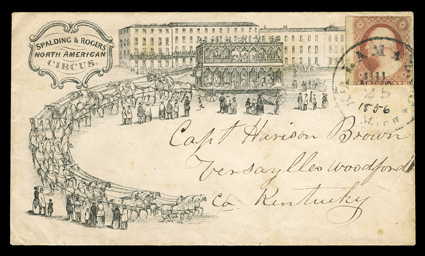 SPALDING & ROGERS
NORTH AMERICAN
CIRCUS.
1856
Capt Harison Brown
Versaylles Woodford
co. Kentucky